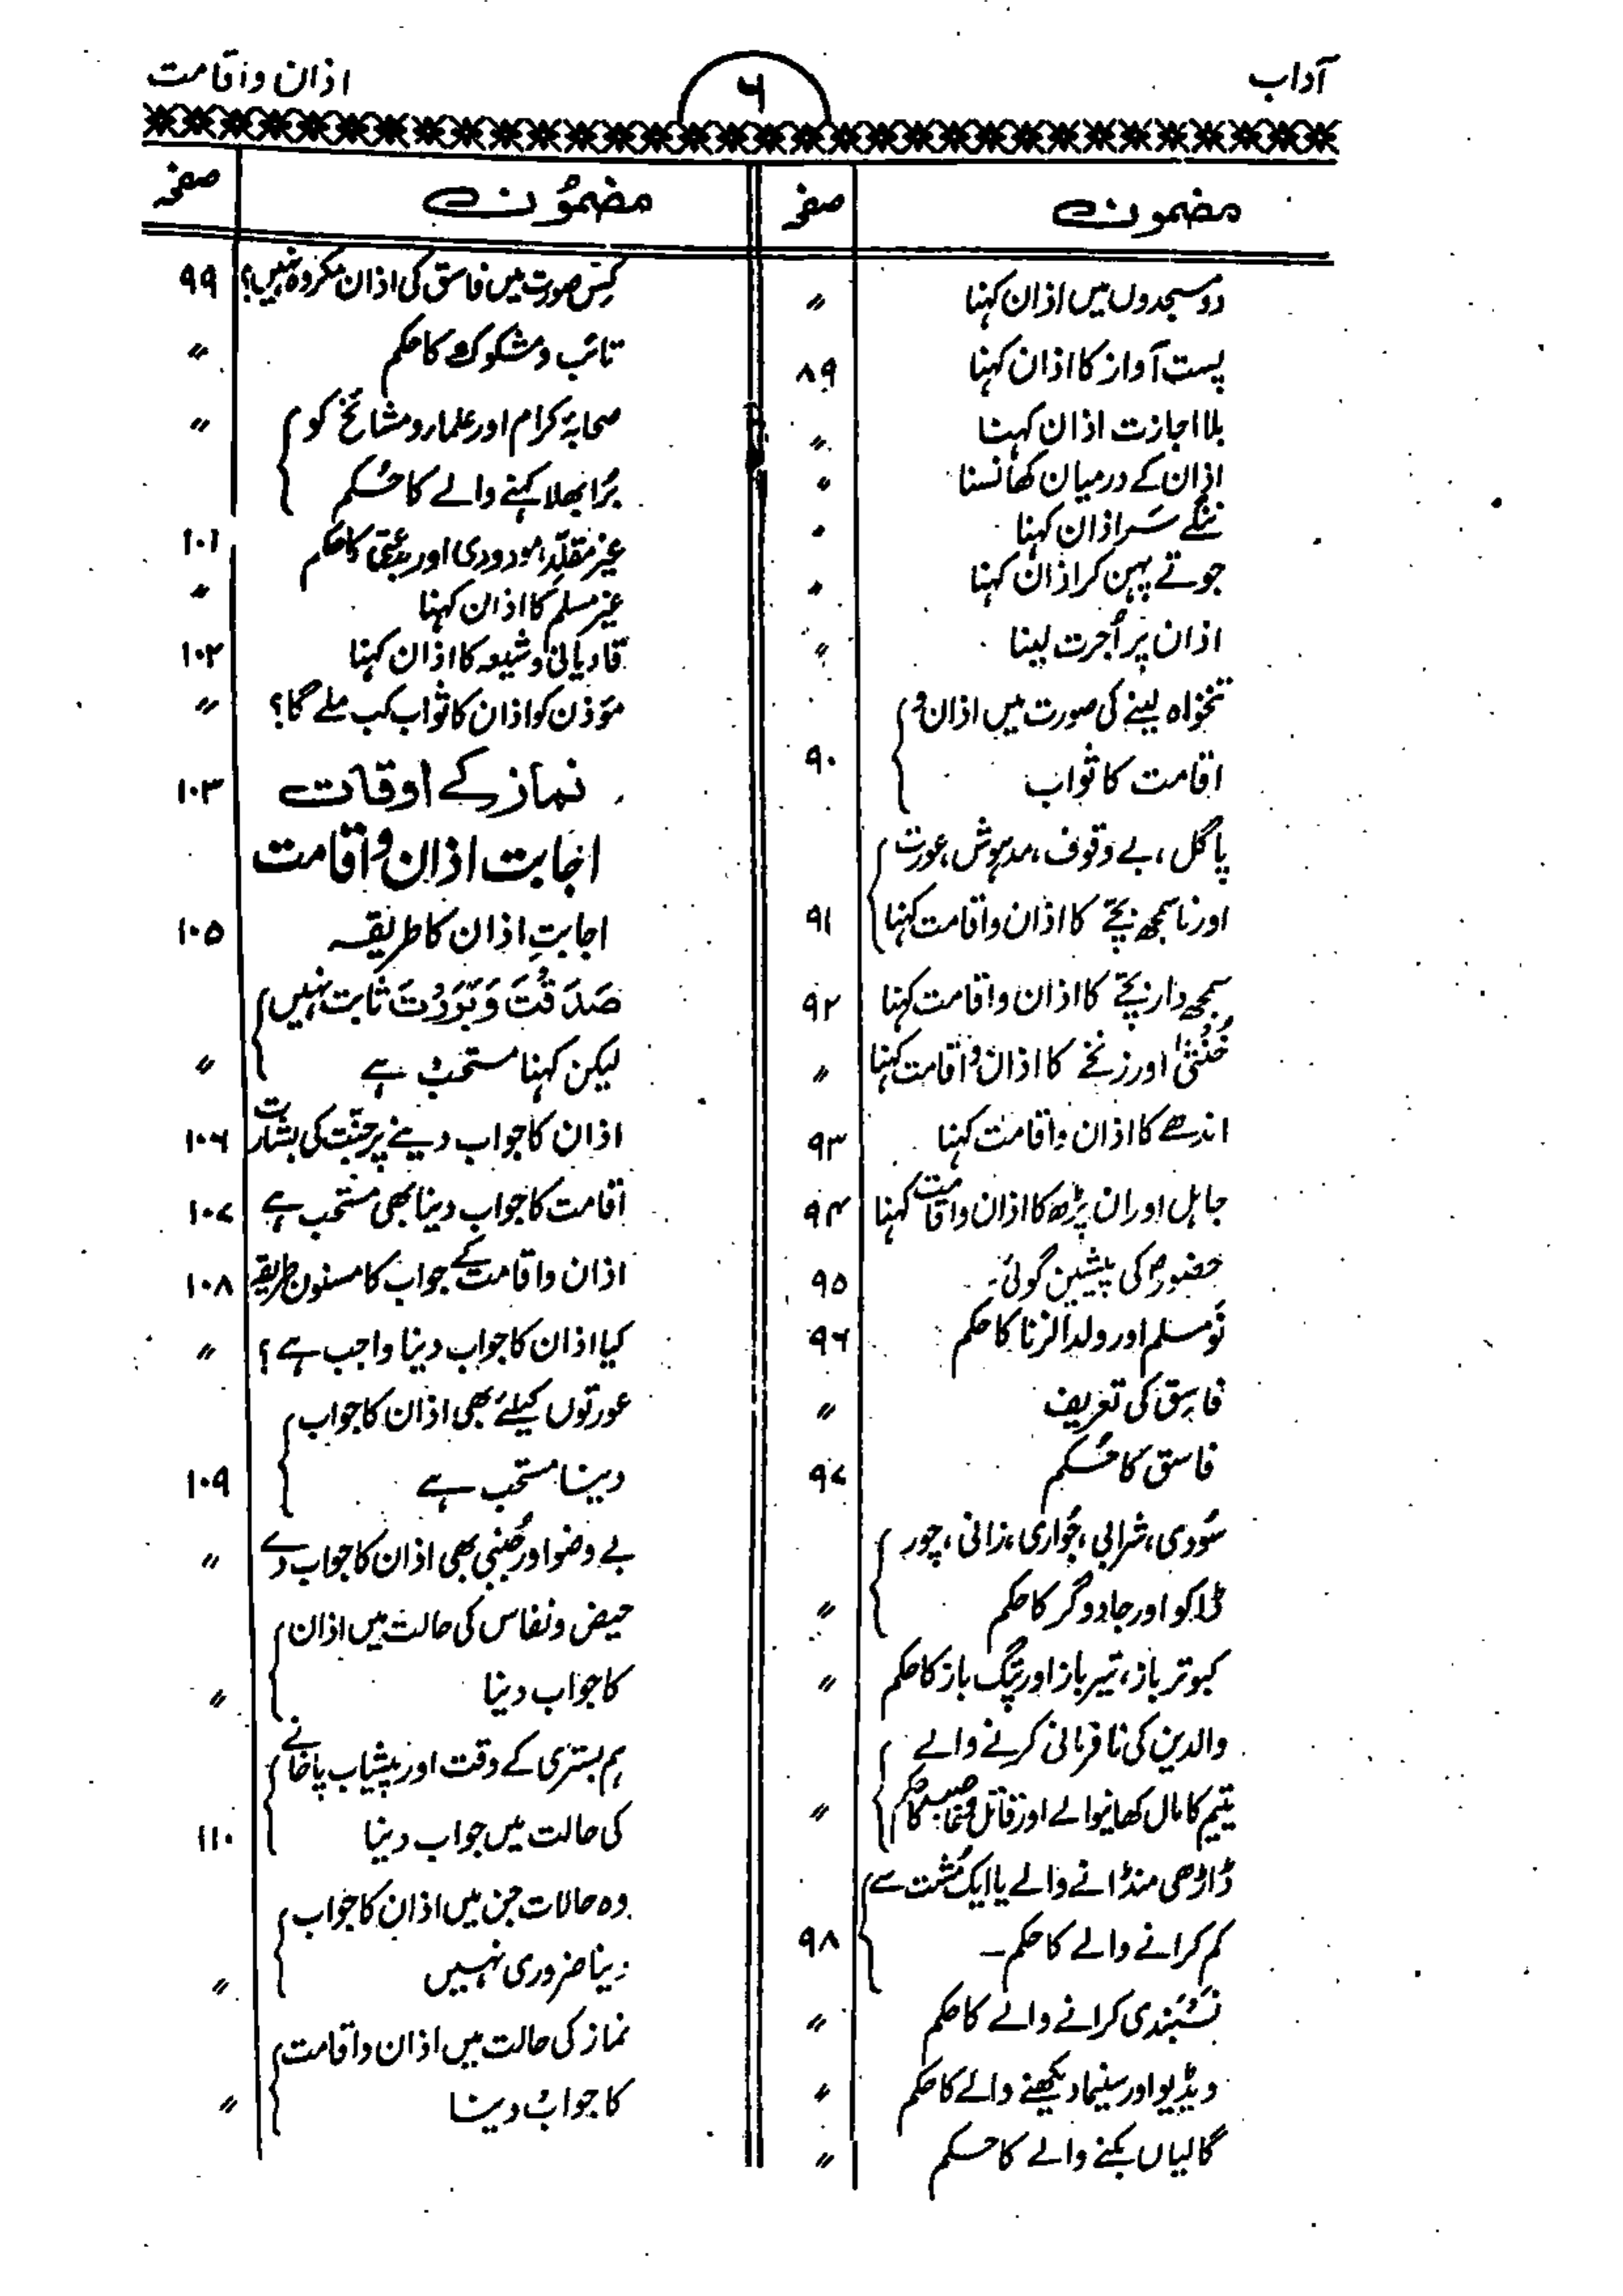 آداب
۶
اذان واقامت
مضمون
صفحہ
دو مسجدوں میں اذان کہنا
〃
پست آواز کا اذان کہنا
۸۹
بلا اجازت اذان کہنا
〃
اذان کے درمیان کھانسنا
〃
ننگے سَر اذان کہنا
〃
جوتے پہن کر اذان کہنا
〃
اذان پر اُجرت لینا
〃
تنخواہ لینے کی صورت میں اذان و
اقامت کا ثواب
۹۰
پاگل، بے وقوف، مدہوش، عورت
اور ناسمجھ بچّے کا اذان واقامت کہنا
۹۱
سمجھ دار بچّے کا اذان واقامت کہنا
۹۲
خُنثیٰ اور زنخے کا اذان واقامت کہنا
〃
اندھے کا اذان واقامت کہنا
۹۳
جاہل اور ان پڑھ کا اذان واقامت کہنا
۹۴
حضورؐ کی پیشین گوئی۔
۹۵
نَو مسلم اور ولد الزنا کا حکم
۹۶
فاسِق کی تعریف
〃
فاسق کا حُکم
۹۷
سُودی، شرابی، جُواری، زانی، چور
ڈاکو اور جادوگر کا حکم
〃
کبوتر باز، تیر باز اور پتنگ باز کا حکم
〃
والدین کی نافرمانی کرنے والے
یتیم کا مال کھانیوالے اور قاتل وغاصب کا حکم
〃
ڈاڑھی منڈانے والے یا ایک مُشت سے
کم کرانے والے کا حکم۔
۹۸
نسبندی کرانے والے کا حکم
〃
ویڈیو اور سنیما دیکھنے والے کا حکم
〃
گالیاں بکنے والے کا حکم
〃
مضمُون
صفحہ
کِس صورت میں فاسق کی اذان مکروہ نہیں؟
۹۹
تائب ومشکوک کا حکم
〃
صحابۂ کرام اور علماء ومشائخ کو
〃
بُرا بھلا کہنے والے کا حُکم
غیر مقلّد، مودودی اور بدعتی کا حکم
۱۰۱
غیر مسلم کا اذان کہنا
〃
قادیانی وشیعہ کا اذان کہنا
۱۰۲
مؤذن کو اذان کا ثواب کب ملے گا؟
〃
نماز کے اوقات
۱۰۳
اجابت اذان واقامت
اجابتِ اذان کا طریقہ
۱۰۵
صَدَقْتَ وَبَرَرْتَ ثابت نہیں
لیکن کہنا مستحب ہے
〃
اذان کا جواب دینے پر جنّت کی بشارت
۱۰۶
اقامت کا جواب دینا بھی مستحب ہے
۱۰۷
اذان واقامت کے جواب کا مسنون طریقہ
۱۰۸
کیا اذان کا جواب دینا واجب ہے؟
〃
عورتوں کیلئے بھی اذان کا جواب
دینا مستحب ہے
۱۰۹
بے وضو اور جُنبی بھی اذان کا جواب دے
〃
حیض ونفاس کی حالت میں اذان
کا جواب دینا
〃
ہم بستری کے وقت اور پیشاب پاخانے
کی حالت میں جواب دینا
۱۱۰
وہ حالات جن میں اذان کا جواب
دینا ضروری نہیں
〃
نماز کی حالت میں اذان واقامت
کا جواب دینا
〃